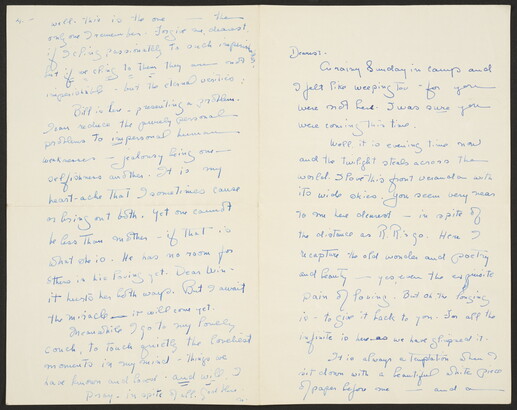 4.
well. This is the one — the
only one I remember. Forgive me, dearest
if I cling passionately to such
but if we cling to them they are not
but the eternal verities;
But is here - presenting a problem.
I can reduce the purely personal
problems to impersonal human
weaknesses - jealousy being one
selfishness another. It is my
heart-ache that I sometimes cause
or bring out both. Yet one cannot
be less than mother - if that is
what she is. He has no room for
others in his loving yet. Dear
it hurts her both ways. But I await
the miracle — it will come yet.
Meanwhile I go to my lonely
couch, to touch quietly the loveliest
moments in my mind - things we
have known and loved - and will I
pray - in spite of all. God bless
Dearest.
Sunday in camps and
I felt like weeping too - for you
were not here. I was sure you
were coming this time.
Well it is evening time now
and the twilight steals across the
world. I love this front verandah with
its wide skies. You seem very near
to me here dearest - in spite of
the distance as R. Ringo. Here I
recapture the old wonder and poetry
and beauty — yes, even the exquisite
pain of loving. But oh the longing
is - to give it back to you. For all the
infinite is here as we have glimpsed it.
It is always a temptation when I
sit down with a beautiful white piece
of paper before me — and a —